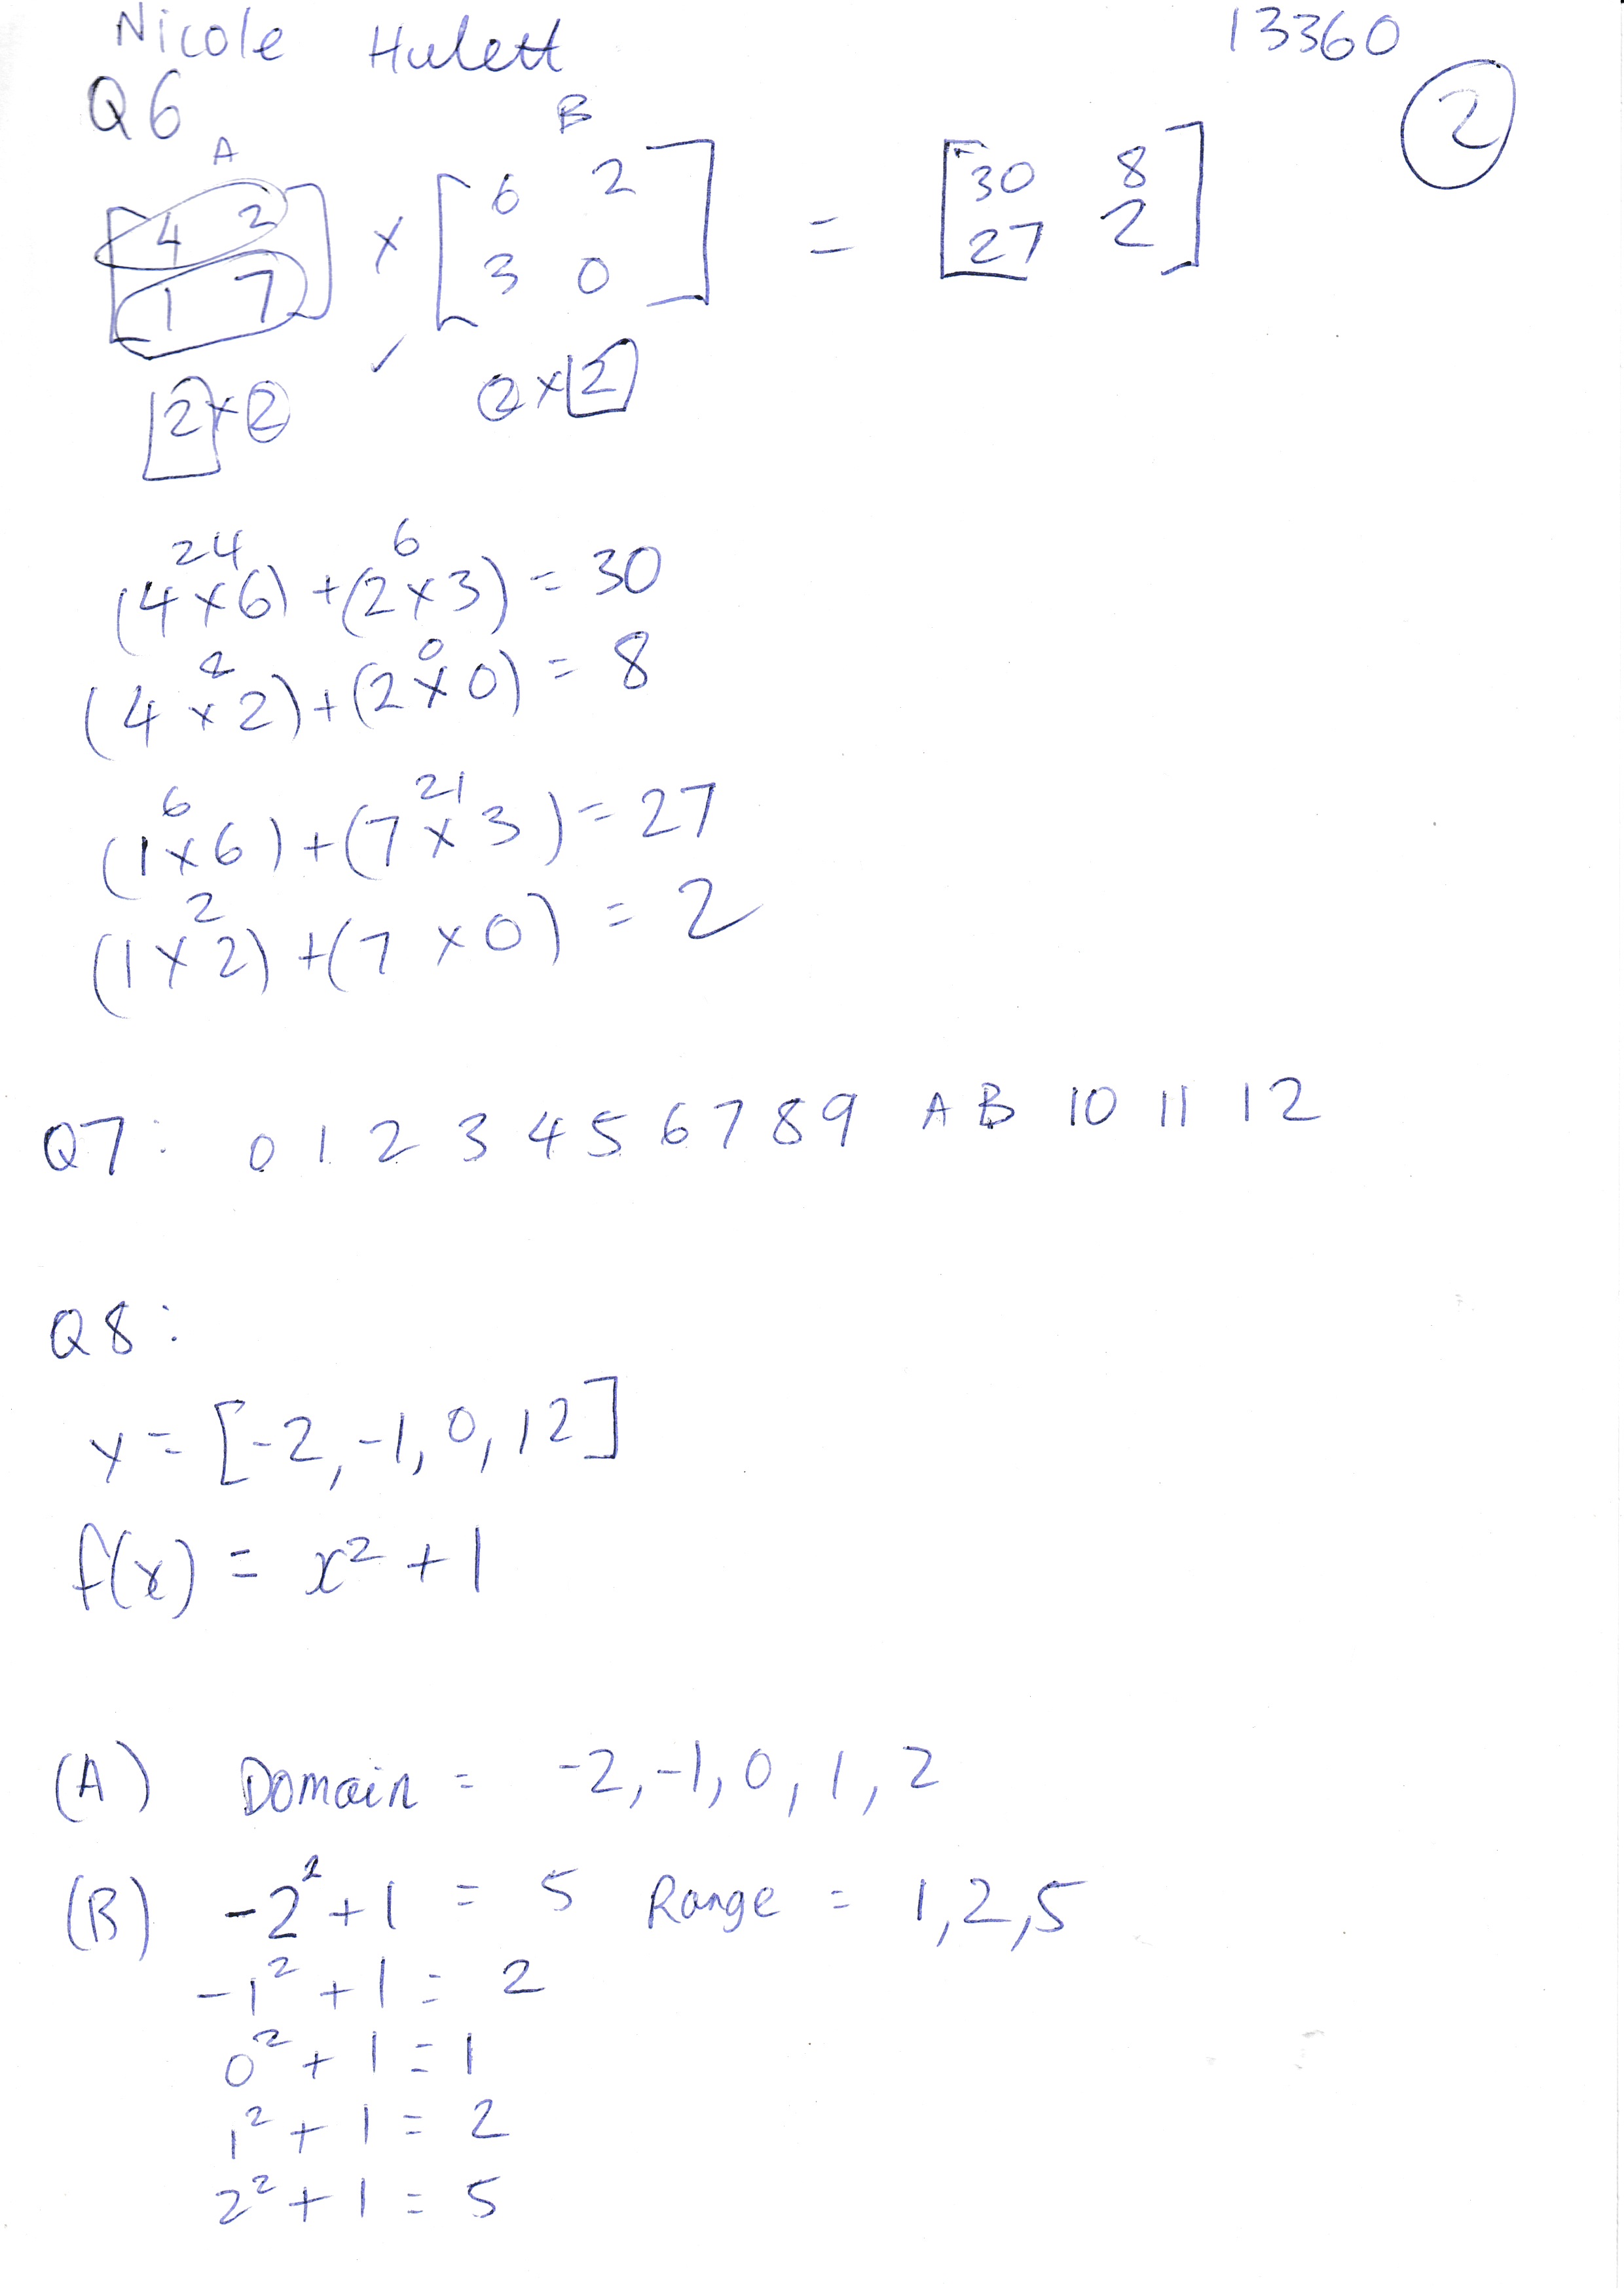 Nicole Hulett 13360
Q6 2
A B
[4 2 × [6 2 = [30 8
1 7] 3 0] 27 2]
2×2 ✓ 2×2
24 6
(4×6) + (2×3) = 30
8 0
(4×2) + (2×0) = 8
6 21
(1×6) + (7×3) = 27
2
(1×2) + (7×0) = 2
Q7: 0 1 2 3 4 5 6 7 8 9 A B 10 11 12
Q8:
x = [-2, -1, 0, 12]
f(x) = x² + 1
(A) Domain = -2, -1, 0, 1, 2
(B) -2² + 1 = 5 Range = 1, 2, 5
-1² + 1 = 2
0² + 1 = 1
1² + 1 = 2
2² + 1 = 5